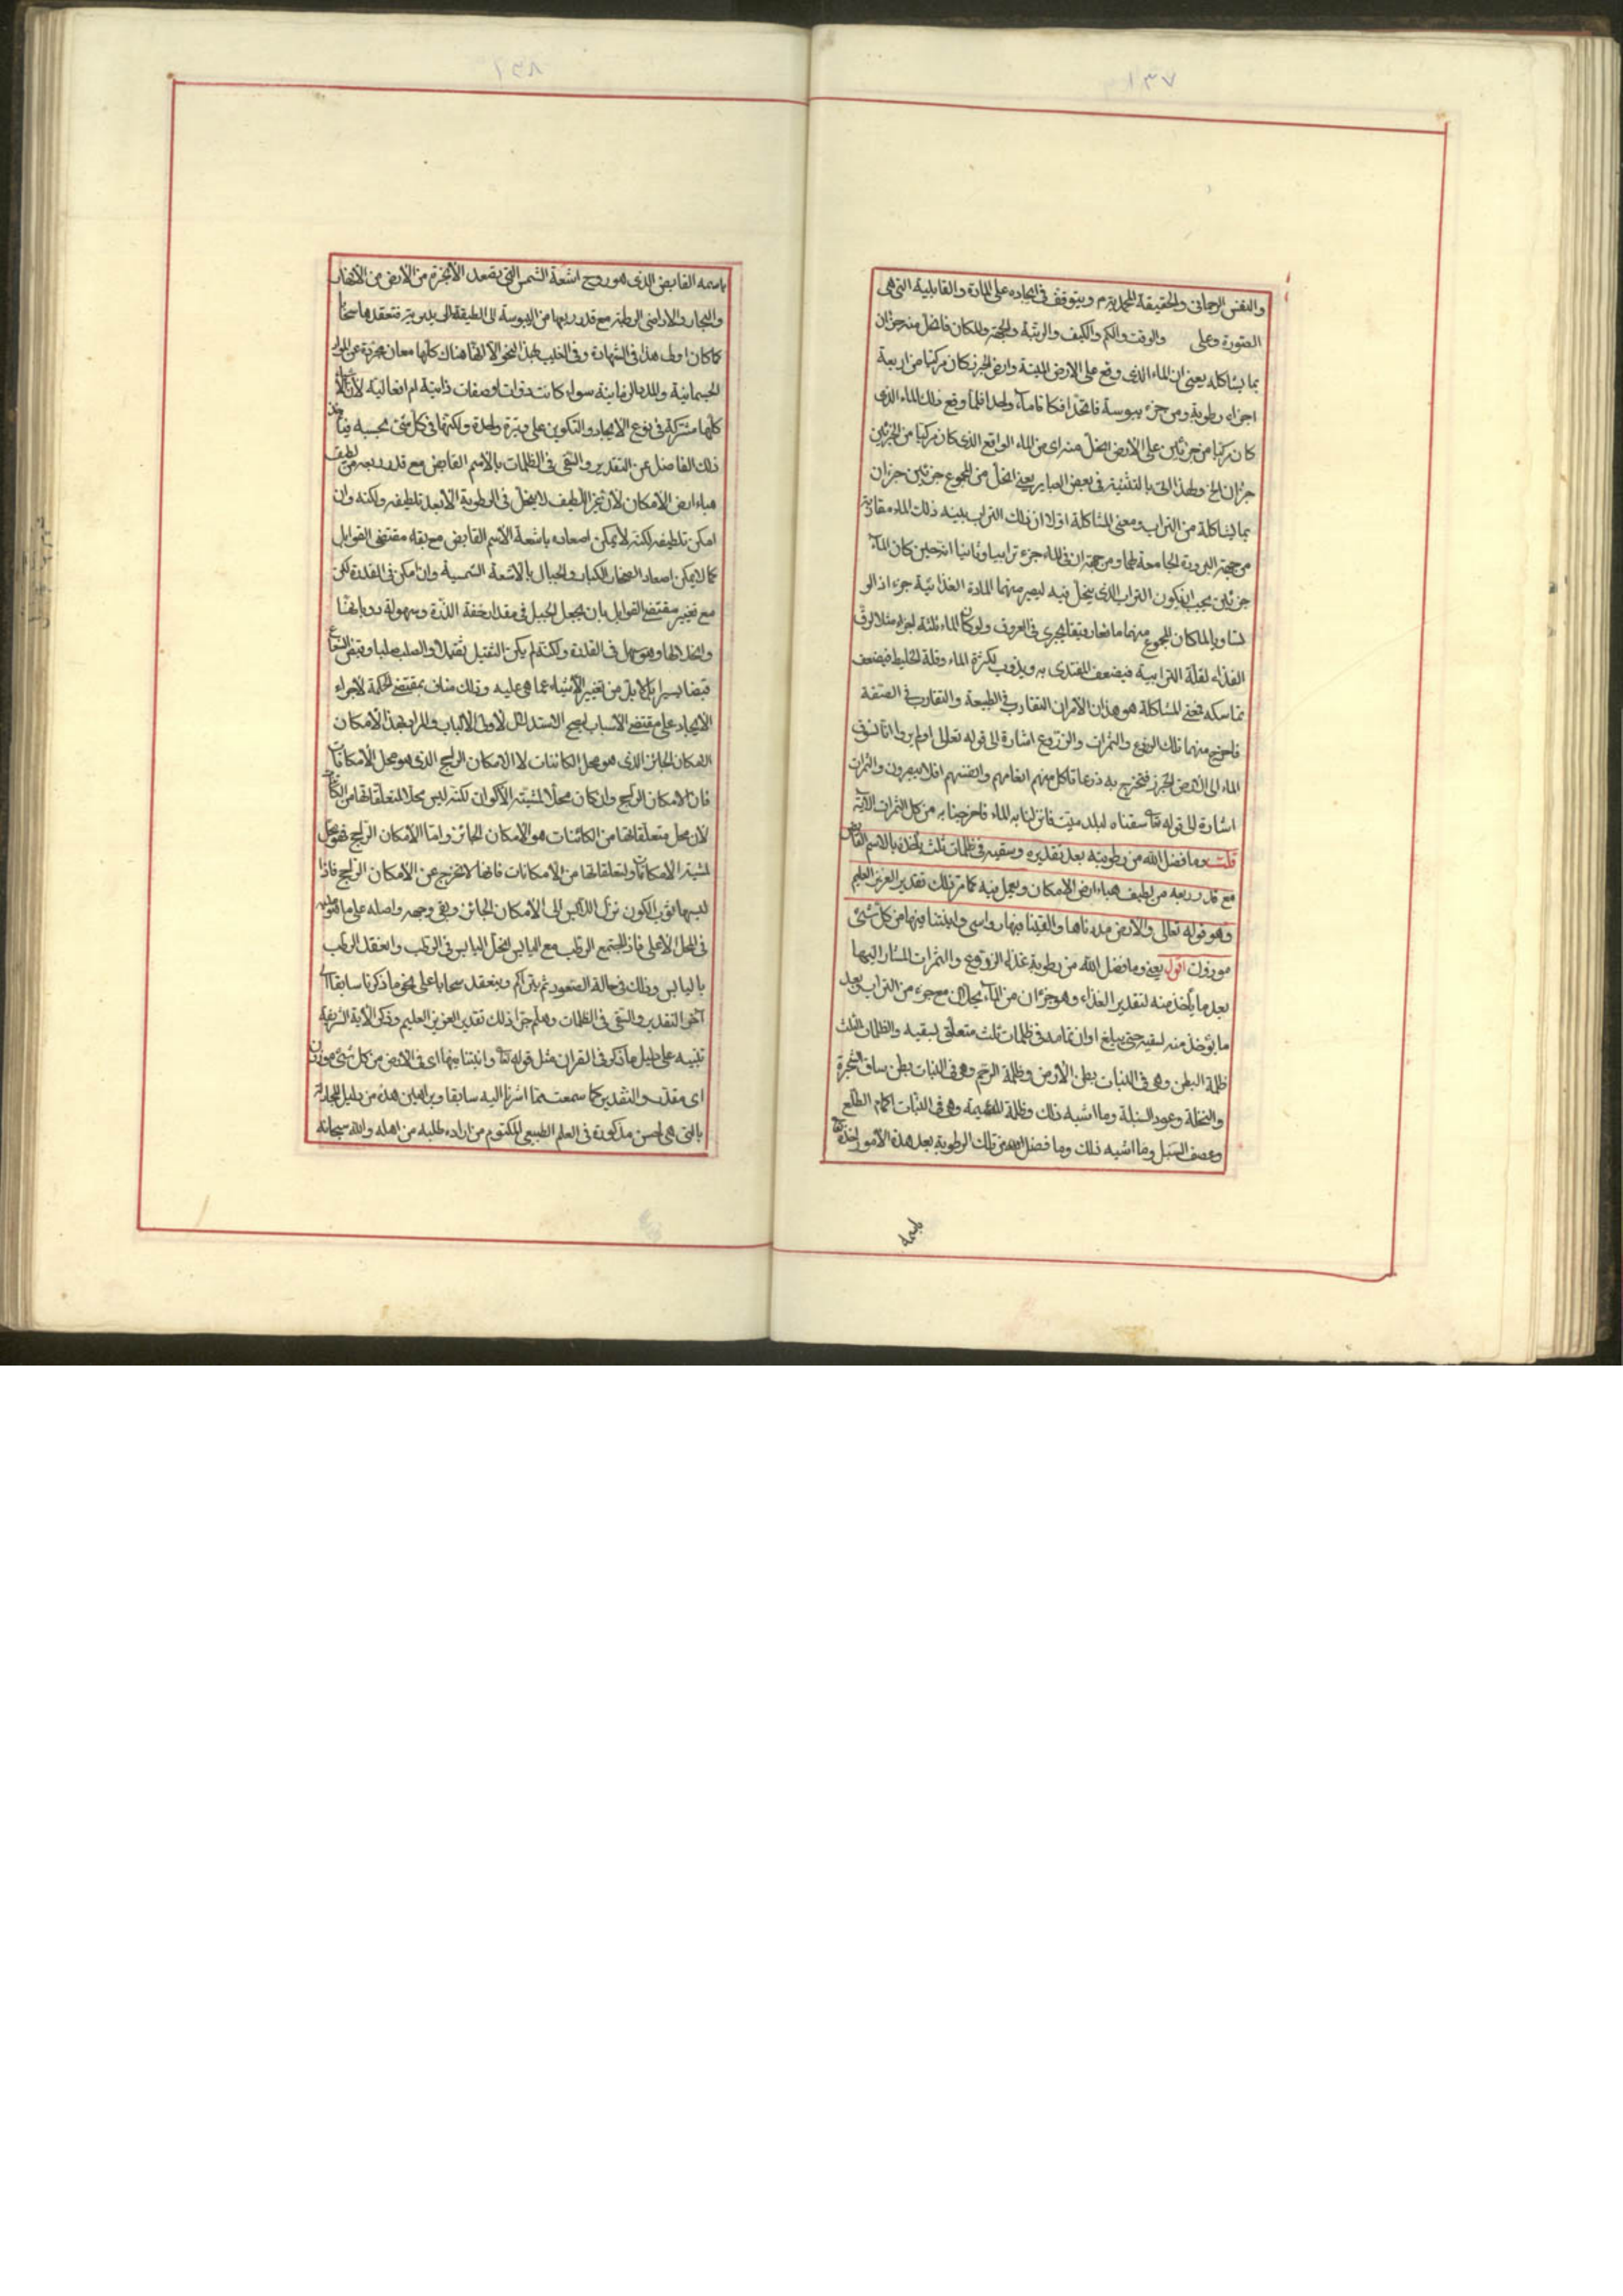 ١٣٧
والنفس الرحمانى والحقيقة المحمدية م ويتوقف فى ايجاده على المادة والقابلية التى هى
الصورة وعلى والوقت والكم والكيف والرتبة والجهة والمكان فانحل منه جزءان
بما يشاكله يعنى ان الماء الذى وقع على الارض الميتة وارض الجرز كان مركبا من اربعة
اجزاء رطوبة ومن جزء يبوسة فاتحدا فكانا ماء واحدا فلما وقع ذلك الماء الذى
كان مركبا من جزئين على الارض انحل منه اى من الماء الواقع الذى كان مركبا من الجزئين
جزءان الخ ولهذا اتى بالتثنية فى بعض العبارير يعنى انحل من المجموع جزئين جزءان
بما يشاكله من التراب ومعنى المشاكلة اولا ان ذلك التراب بينه ذلك الماء مقارنة
من جهة البرودة الجامعة لهما ومن جهة ان فى الماء جزء ترابيا وثانيا انه حين كان الماء
جزئين يجب ان يكون التراب الذى ينحل فيه ليصير منهما المادة الغذائية جزء اذ لو
تساويا لما كان المجموع منهما مائعا رقيقا يجرى فى العروق ولو كان الماء ثلثة اجزاء مثلا لرق
الغذاء لقلة الترابية فيضعف المغتذى به ويذوب لكثرة الماء وقلة الخليط فيضعف
تماسكه فمعنى المشاكلة هو هذان الامران التقارب فى الطبيعة والتقارب فى الصفة
فاخرج منهما ذلك الزرع والثمرات والزروع اشارة الى قوله تعالى اولم يروا انا نسوق
الماء الى الارض الجرز فنخرج به زرعا تاكل منهم انعامهم وانفسهم افلا يبصرون والثمرات
اشارة الى قوله تعا سقناه لبلد ميت فانزلنا به الماء فاخرجنا به من كل الثمرات الآية
قلت وما فضل الله من رطوبته بعد تقديره وسقيه فى ظلمات ثلث ياخذه بالاسم القابض
مع قدر ربعه من لطيف هباء ارض الامكان ويعمل فيه كما مر ذلك تقدير العزيز العليم
وهو قوله تعالى والارض مددناها والقينا فيها رواسى وانبتنا فيها من كل شئ
موزون اقول يعنى وما فضل الله من رطوبة غذاء الزروع والثمرات المشار اليها
بعد ما ياخذ منه لتقدير الغذاء وهو جزءان من الماء يحلان مع جزء من التراب وبعد
ما يؤخذ منه لسقيه حتى يبلغ اوان تمامه فى ظلمات ثلث متعلق بسقيه والظلمات الثلث
ظلمة البطن وهى فى النبات بطن الارض وظلمة الرحم وهى فى النبات بطن ساق الشجرة
والنخلة وعود السنبلة وما اشبه ذلك وظلمة المشيمة وهى فى النبات اكمام الطلع
وعصف السنبل وما اشبه ذلك وما فضل الله من تلك الرطوبة بعد هذه الامور اخذه تعا
باسمه
١٣٨
باسمه القابض الذى هو روح اشعة الشمس التى يصعد الابخرة من الارض من الانهار
والبحار والاراضى الرطبة مع قدر ربعها من اليبوسة الى الطبقة الزمهريرية فتعقدها سحابا
كما كان اولا هذا فى الشهادة وفى الغيب بهذا النحو الا انها هناك كلها معان مجردة عن المواد
الجسمانية والمدد الزمانية سواء كانت ذوات او صفات ذاتية ام افعالية لان
كلها مشتركة فى نوع الايجاد والتكوين على وتيرة واحدة ولكنها فى كل شئ بحسبه فياخذ
ذلك الفاضل عن التقدير والسقى فى الظلمات بالاسم القابض مع قدر ربعه من لطيف
هباء ارض الامكان لان غير اللطيف لا ينحل فى الرطوبة الا بعد تلطيفه ولكنه وان
امكن تلطيفه لكنه لا يمكن اصعاده باشعة الاسم القابض مع بقاء مقتضى القوابل
كما لا يمكن اصعاد الصخار الكبار والجبال بالاشعة الشمسية وان امكن فى القدرة لكن
مع تغيير مقتضى القوابل بان يجعل الجبل فى مقدار خفة الذرة وسهولة ذوبانها
وانحلالها وهو سهل فى القدرة ولكنه لم يكن الثقيل ثقيلا والصلب صلبا وقبض
قبضا يسيرا بل لابد من تغيير الاشياء عما هى عليه وذلك مناف بمقتضى الحكمة لاجراء
الايجاد على مقتضى الاسباب ليصح الاستدلال لاولى الالباب والمراد بهذا الامكان
الامكان الجائز الذى هو محل الكائنات لا الامكان الراجح الذى هو محل الامكانات
فان الامكان الراجح وان كان محلا لمشيته الاكوان لكنه ليس محلا لمتعلقاتها من الكائنات
لان محل متعلقاتها من الكائنات هو الامكان الجائز واما الامكان الراجح فهو محل
لمشية الامكانات ولتعلقاتها من الامكانات فانها لا تخرج عن الامكان الراجح فاذا
لبسها ثوب الكون نزل اللابس الى الامكان الجائز وبقى وجهه واصله على ما هو عليه
فى المحل الاعلى فاذا اجتمع الرطب مع اليابس انحل اليابس فى الرطب وانعقد الرطب
باليابس وذلك فى حالة الصعود ثم يتراكم وينعقد سحابا على نحو ما ذكرنا سابقا الى
آخر التقدير والسقى فى الظلمات وهلم جرا ذلك تقدير العزيز العليم وذكر الآية الشريفة
تنبيه على دليل ما ذكر فى القران مثل قوله تعا وانبتنا فيها اى فى الارض من كل شئ موزون
اى مقدر والتقدير كما سمعت مما اشرنا اليه سابقا وبراهين هذه من دليل المجادلة
بالتى هى احسن مذكورة فى العلم الطبيعى المكتوم من اراده طلبه من اهله والله سبحانه